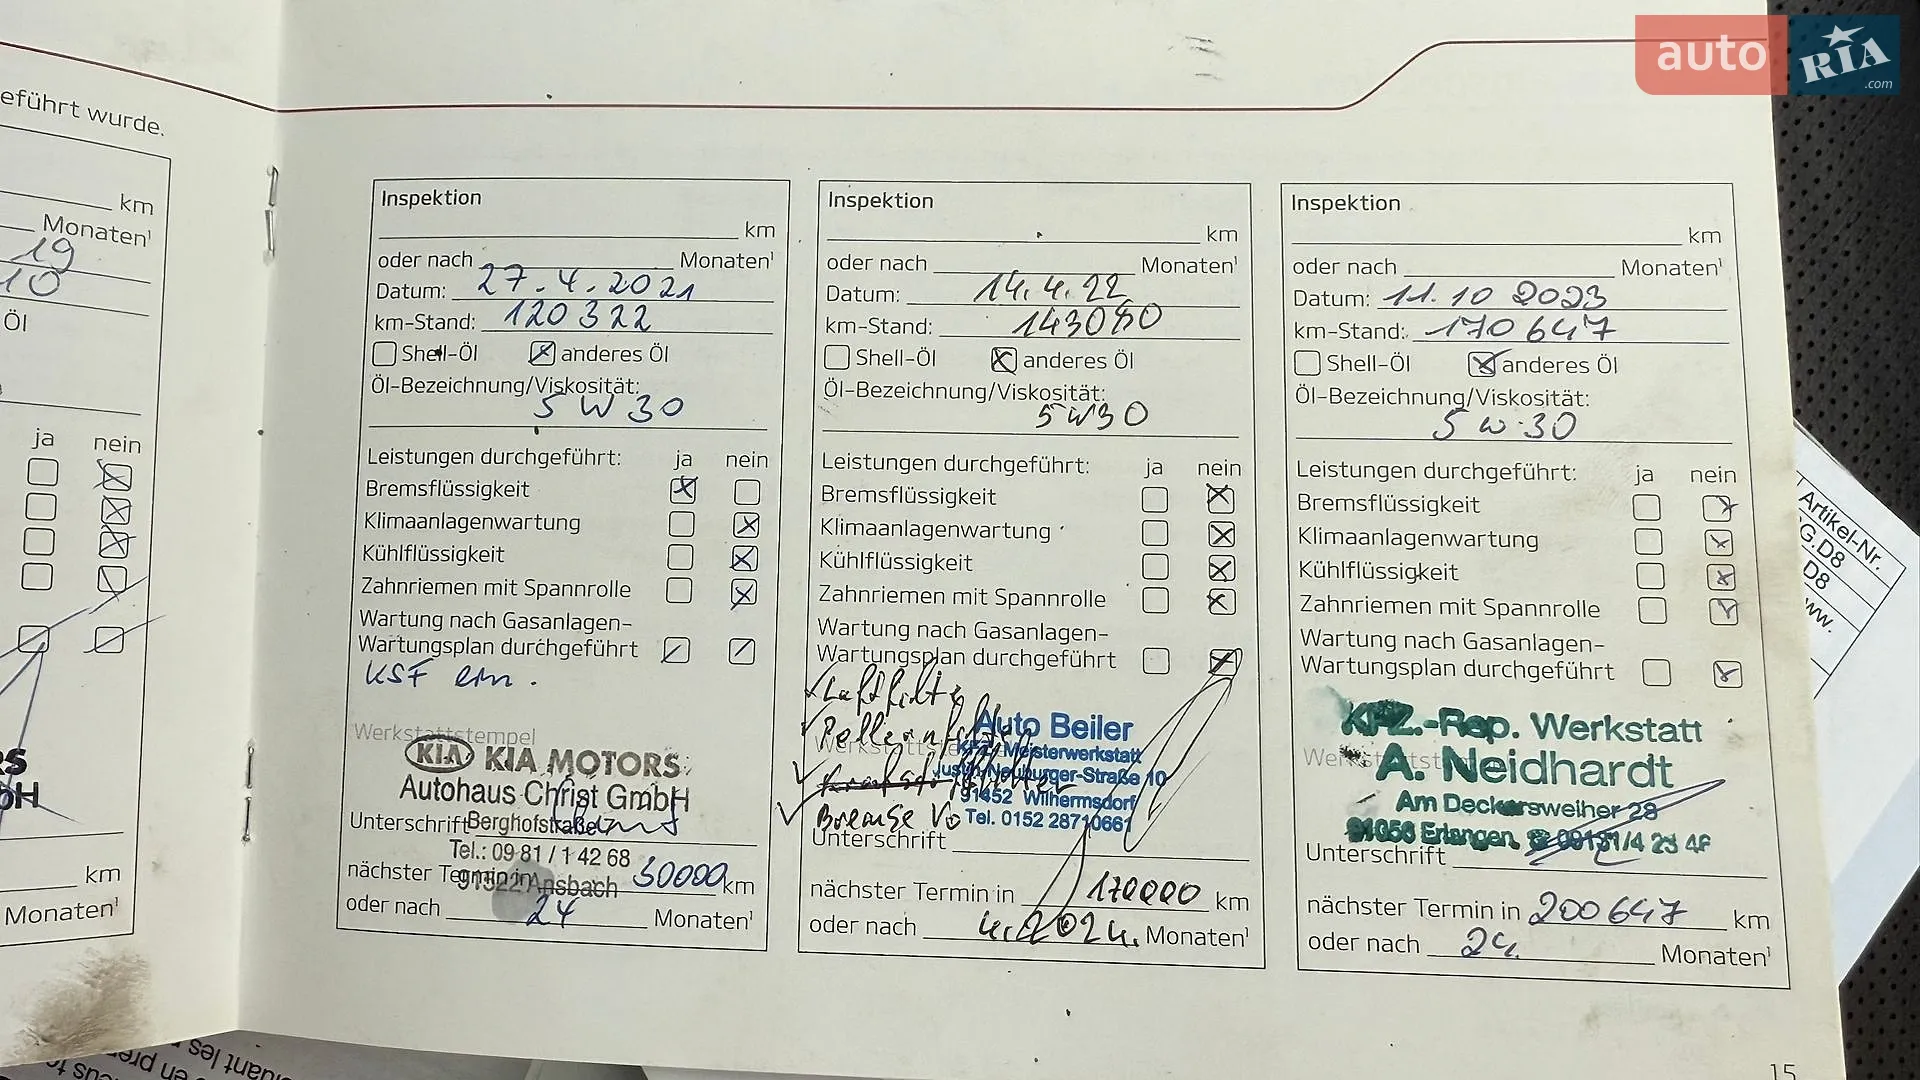 auto RIA .com
eführt wurde.
km
Monaten¹
19
10
Öl
ja nein
km
Monaten¹
Inspektion
km
oder nach Monaten¹
Datum: 27.4.2021
km-Stand: 120322
Shell-Öl anderes Öl
Öl-Bezeichnung/Viskosität:
5 W 30
Leistungen durchgeführt: ja nein
Bremsflüssigkeit
Klimaanlagenwartung
Kühlflüssigkeit
Zahnriemen mit Spannrolle
Wartung nach Gasanlagen-
Wartungsplan durchgeführt
KSF
Werkstattstempel
KIA KIA MOTORS
Autohaus Christ GmbH
Unterschrift Berghofstraße 7
Tel.: 09 81 / 1 42 68
nächster Termin in 30000 km
91522 Ansbach
oder nach 24 Monaten¹
Inspektion
km
oder nach Monaten¹
Datum: 14.4.22
km-Stand: 143080
Shell-Öl anderes Öl
Öl-Bezeichnung/Viskosität:
5W30
Leistungen durchgeführt: ja nein
Bremsflüssigkeit
Klimaanlagenwartung
Kühlflüssigkeit
Zahnriemen mit Spannrolle
Wartung nach Gasanlagen-
Wartungsplan durchgeführt
Luftfilter
Pollenfilter
Auto Beiler
KFZ-Meisterwerkstatt
Justin-Neuburger-Straße 10
91452 Wilhermsdorf
Bremse Vo Tel. 0152 28710661
Unterschrift
nächster Termin in 170000 km
oder nach 4.2024. Monaten¹
Inspektion
km
oder nach Monaten¹
Datum: 11.10 2023
km-Stand: 170647
Shell-Öl anderes Öl
Öl-Bezeichnung/Viskosität:
5 W 30
Leistungen durchgeführt: ja nein
Bremsflüssigkeit
Klimaanlagenwartung
Kühlflüssigkeit
Zahnriemen mit Spannrolle
Wartung nach Gasanlagen-
Wartungsplan durchgeführt
KFZ.-Rep. Werkstatt
A. Neidhardt
Am Deckersweiher 28
Erlangen,
Unterschrift
nächster Termin in 200647 km
oder nach 24. Monaten¹
15
Artikel-Nr.
G.D8
D8
ww.